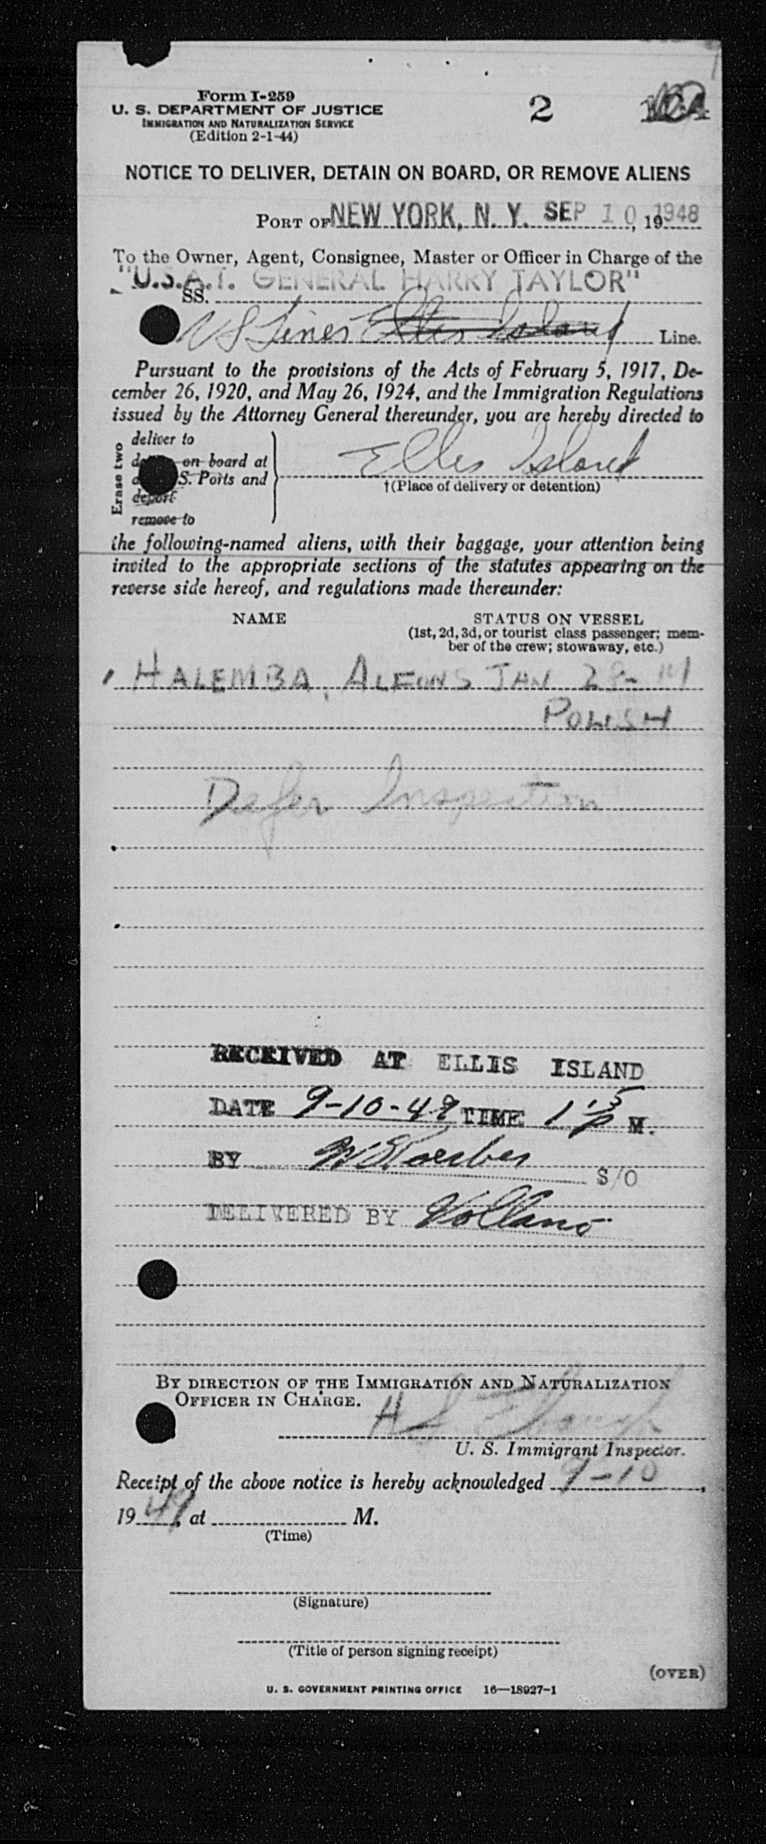 Form I-259
U. S. DEPARTMENT OF JUSTICE
IMMIGRATION AND NATURALIZATION SERVICE
(Edition 2-1-44)
2
NOTICE TO DELIVER, DETAIN ON BOARD, OR REMOVE ALIENS
PORT OF NEW YORK, N. Y. SEP 10, 19 1948
To the Owner, Agent, Consignee, Master or Officer in Charge of the
"U.S.A.T. GENERAL HARRY TAYLOR"
SS.
US Lines Ellis Island Line.
Pursuant to the provisions of the Acts of February 5, 1917, De-
cember 26, 1920, and May 26, 1924, and the Immigration Regulations
issued by the Attorney General thereunder, you are hereby directed to
Erase two
deliver to
on board at
S. Ports and
deport
remove to
Ellis Island
†(Place of delivery or detention)
the following-named aliens, with their baggage, your attention being
invited to the appropriate sections of the statutes appearing on the
reverse side hereof, and regulations made thereunder:
NAME
STATUS ON VESSEL
(1st, 2d, 3d, or tourist class passenger; mem-
ber of the crew; stowaway, etc.)
HALEMBA, ALFONS JAN 28-
POLISH
Defer Inspection
RECEIVED AT ELLIS ISLAND
DATE 9-10-49 TIME 1 15 P M.
BY S/O
DELIVERED BY Vollano
BY DIRECTION OF THE IMMIGRATION AND NATURALIZATION
OFFICER IN CHARGE.
U. S. Immigrant Inspector.
Receipt of the above notice is hereby acknowledged 9-10,
19 49, at M.
(Time)
(Signature)
(Title of person signing receipt)
(OVER)
U. S. GOVERNMENT PRINTING OFFICE 16—18927-1